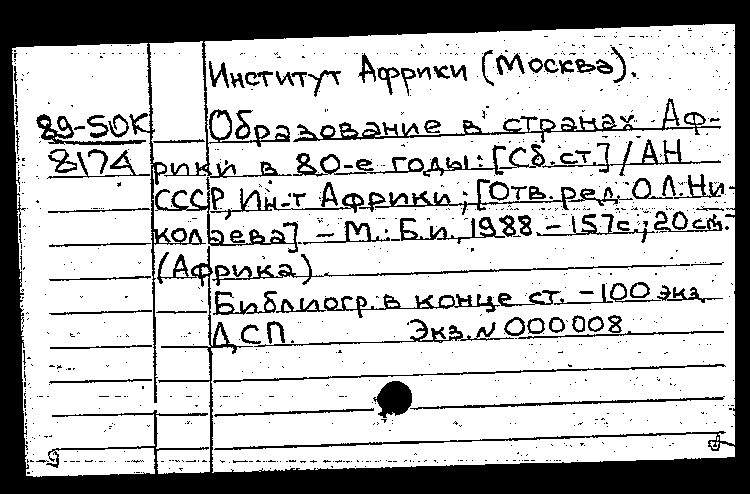 Институт Африки (Москва).
89-50К Образование в странах Аф-
8174 рики в 80-е годы: [Сб. ст.] / АН
СССР, Ин-т Африки; [Отв. ред. О.Л. Ни-
колаева] – М.: Б.и., 1988. – 157с.; 20см.
(Африка).
Библиогр. в конце ст. – 100 экз.
ДСП. Экз. N 000008.